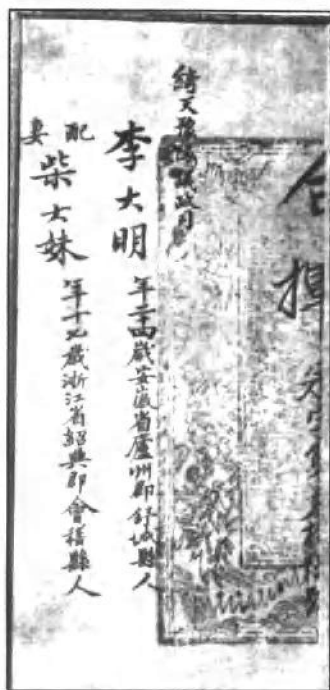 合揮
綺天豫
李大明 年二十四歲安徽省廬州郡舒城縣人
配妻 柴大妹 年十九歲浙江省紹興郡會稽縣人